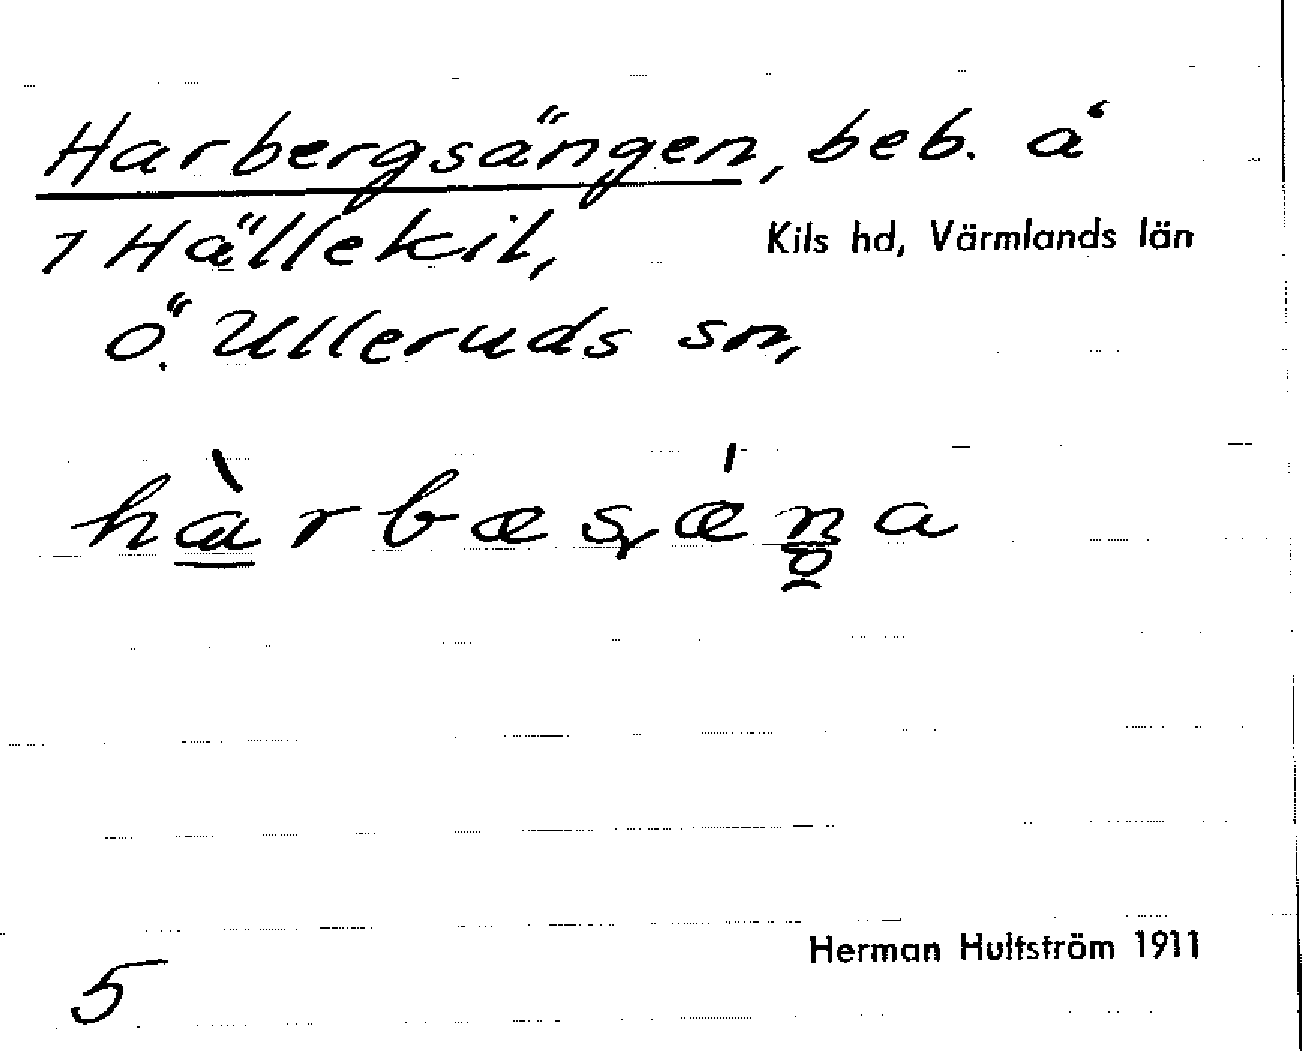 Harbergsängen, beb. å
1 Hällekil,
Kils hd, Värmlands län
Ö. Ulleruds sn,
5
Herman Hultström 1911